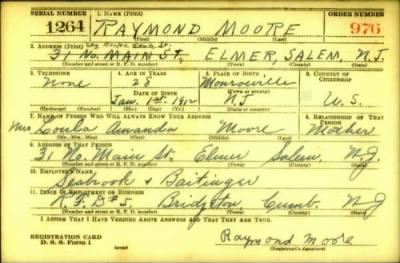 SERIAL NUMBER 1. NAME (Print) ORDER NUMBER
1264 RAYMOND MOORE 976
(First) (Middle) (Last)
2. ADDRESS (Print)
31 No. MAIN St, ELMER, SALEM, N.J.
(Number and street or R. F. D. number) (Town) (County) (State)
3. TELEPHONE 4. AGE IN YEARS 5. PLACE OF BIRTH 6. COUNTRY OF CITIZENSHIP
None 28 Monroeville
DATE OF BIRTH (Town or county)
Jan. 1st. 1912 N.J. U.S.
(Exchange) (Number) (Mo.) (Day) (Yr.) (State or country)
7. NAME OF PERSON WHO WILL ALWAYS KNOW YOUR ADDRESS 8. RELATIONSHIP OF THAT PERSON
Mrs Amanda Moore Mother
(Mr., Mrs., Miss) (First) (Middle) (Last)
9. ADDRESS OF THAT PERSON
31 No. Main St. Elmer Salem N.J.
(Number and street or R. F. D. number) (Town) (County) (State)
10. EMPLOYER'S NAME
Seabrook & Baitinger
11. PLACE OF EMPLOYMENT OR BUSINESS
R.F.D #5. Bridgeton, Cumb. N J
(Number and street or R. F. D. number) (Town) (County) (State)
I AFFIRM THAT I HAVE VERIFIED ABOVE ANSWERS AND THAT THEY ARE TRUE.
REGISTRATION CARD
D. S. S. Form 1 (over) Raymond Moore
(Registrant's signature)